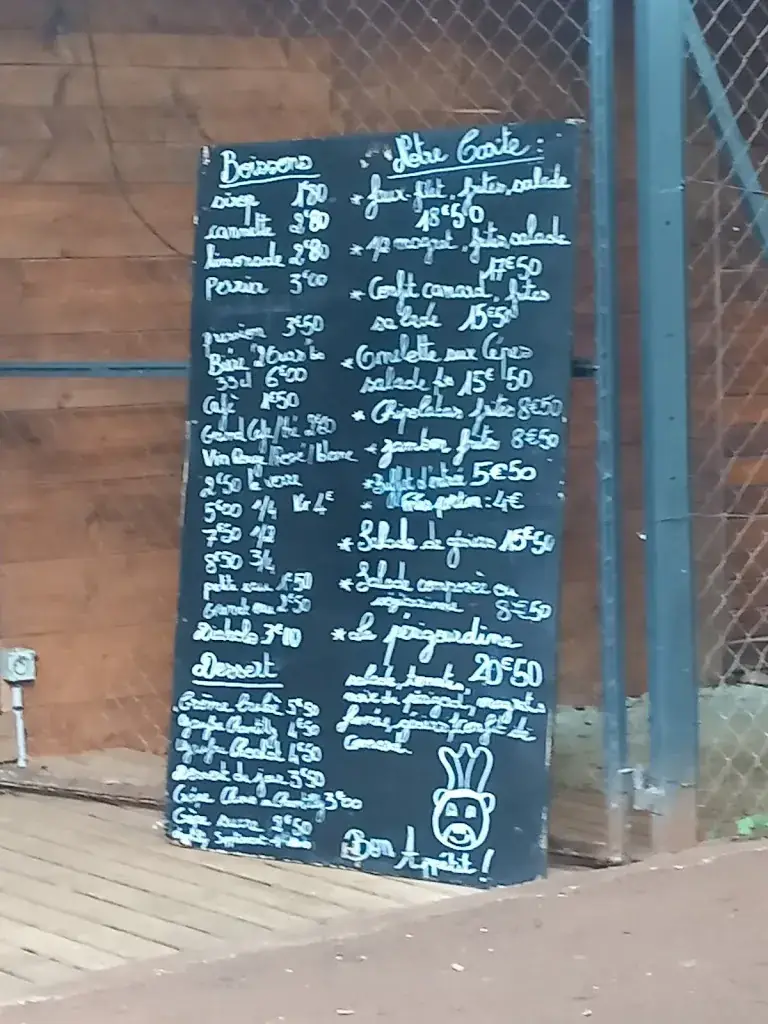 Boissons
sirop 1€80
cannette 2€80
limonade 2€80
Perrier 3€00
pression 3€50
Bière 2
33cl 6€00
Café 1€50
Grand Café/thé 2€80
Vin Rouge/Rosé/blanc
2€50 le verre
5€00 1/4 Kir 4€
7€50 1/2
8€50 3/4
petite eau 1€50
Grande eau 2€50
Diabolo 3€00
Dessert
Crème brulée 5€50
gaufre Chantilly 4€50
gaufre 4€50
Dessert du jour 3€50
Crêpe Chantilly 3€00
Crêpe sucre 2€50
Notre Carte :
* faux-filet, frites, salade
18€50
* 1/2 magret, frites, salade
17€50
* Confit canard, frites
salade 15€50
* Omelette aux Cèpes
salade 15€50
* Chipolatas frites 8€50
* jambon frites 8€50
* Buffet d'entrée 5€50
* Frites portion : 4€
* Salade de gésiers 15€50
* Salade composée ou
8€50
* La périgourdine
20€50
salade, tomate,
noix du périgord, magrets
fumés, gésiers, confit de
Canard
Bon Appétit !